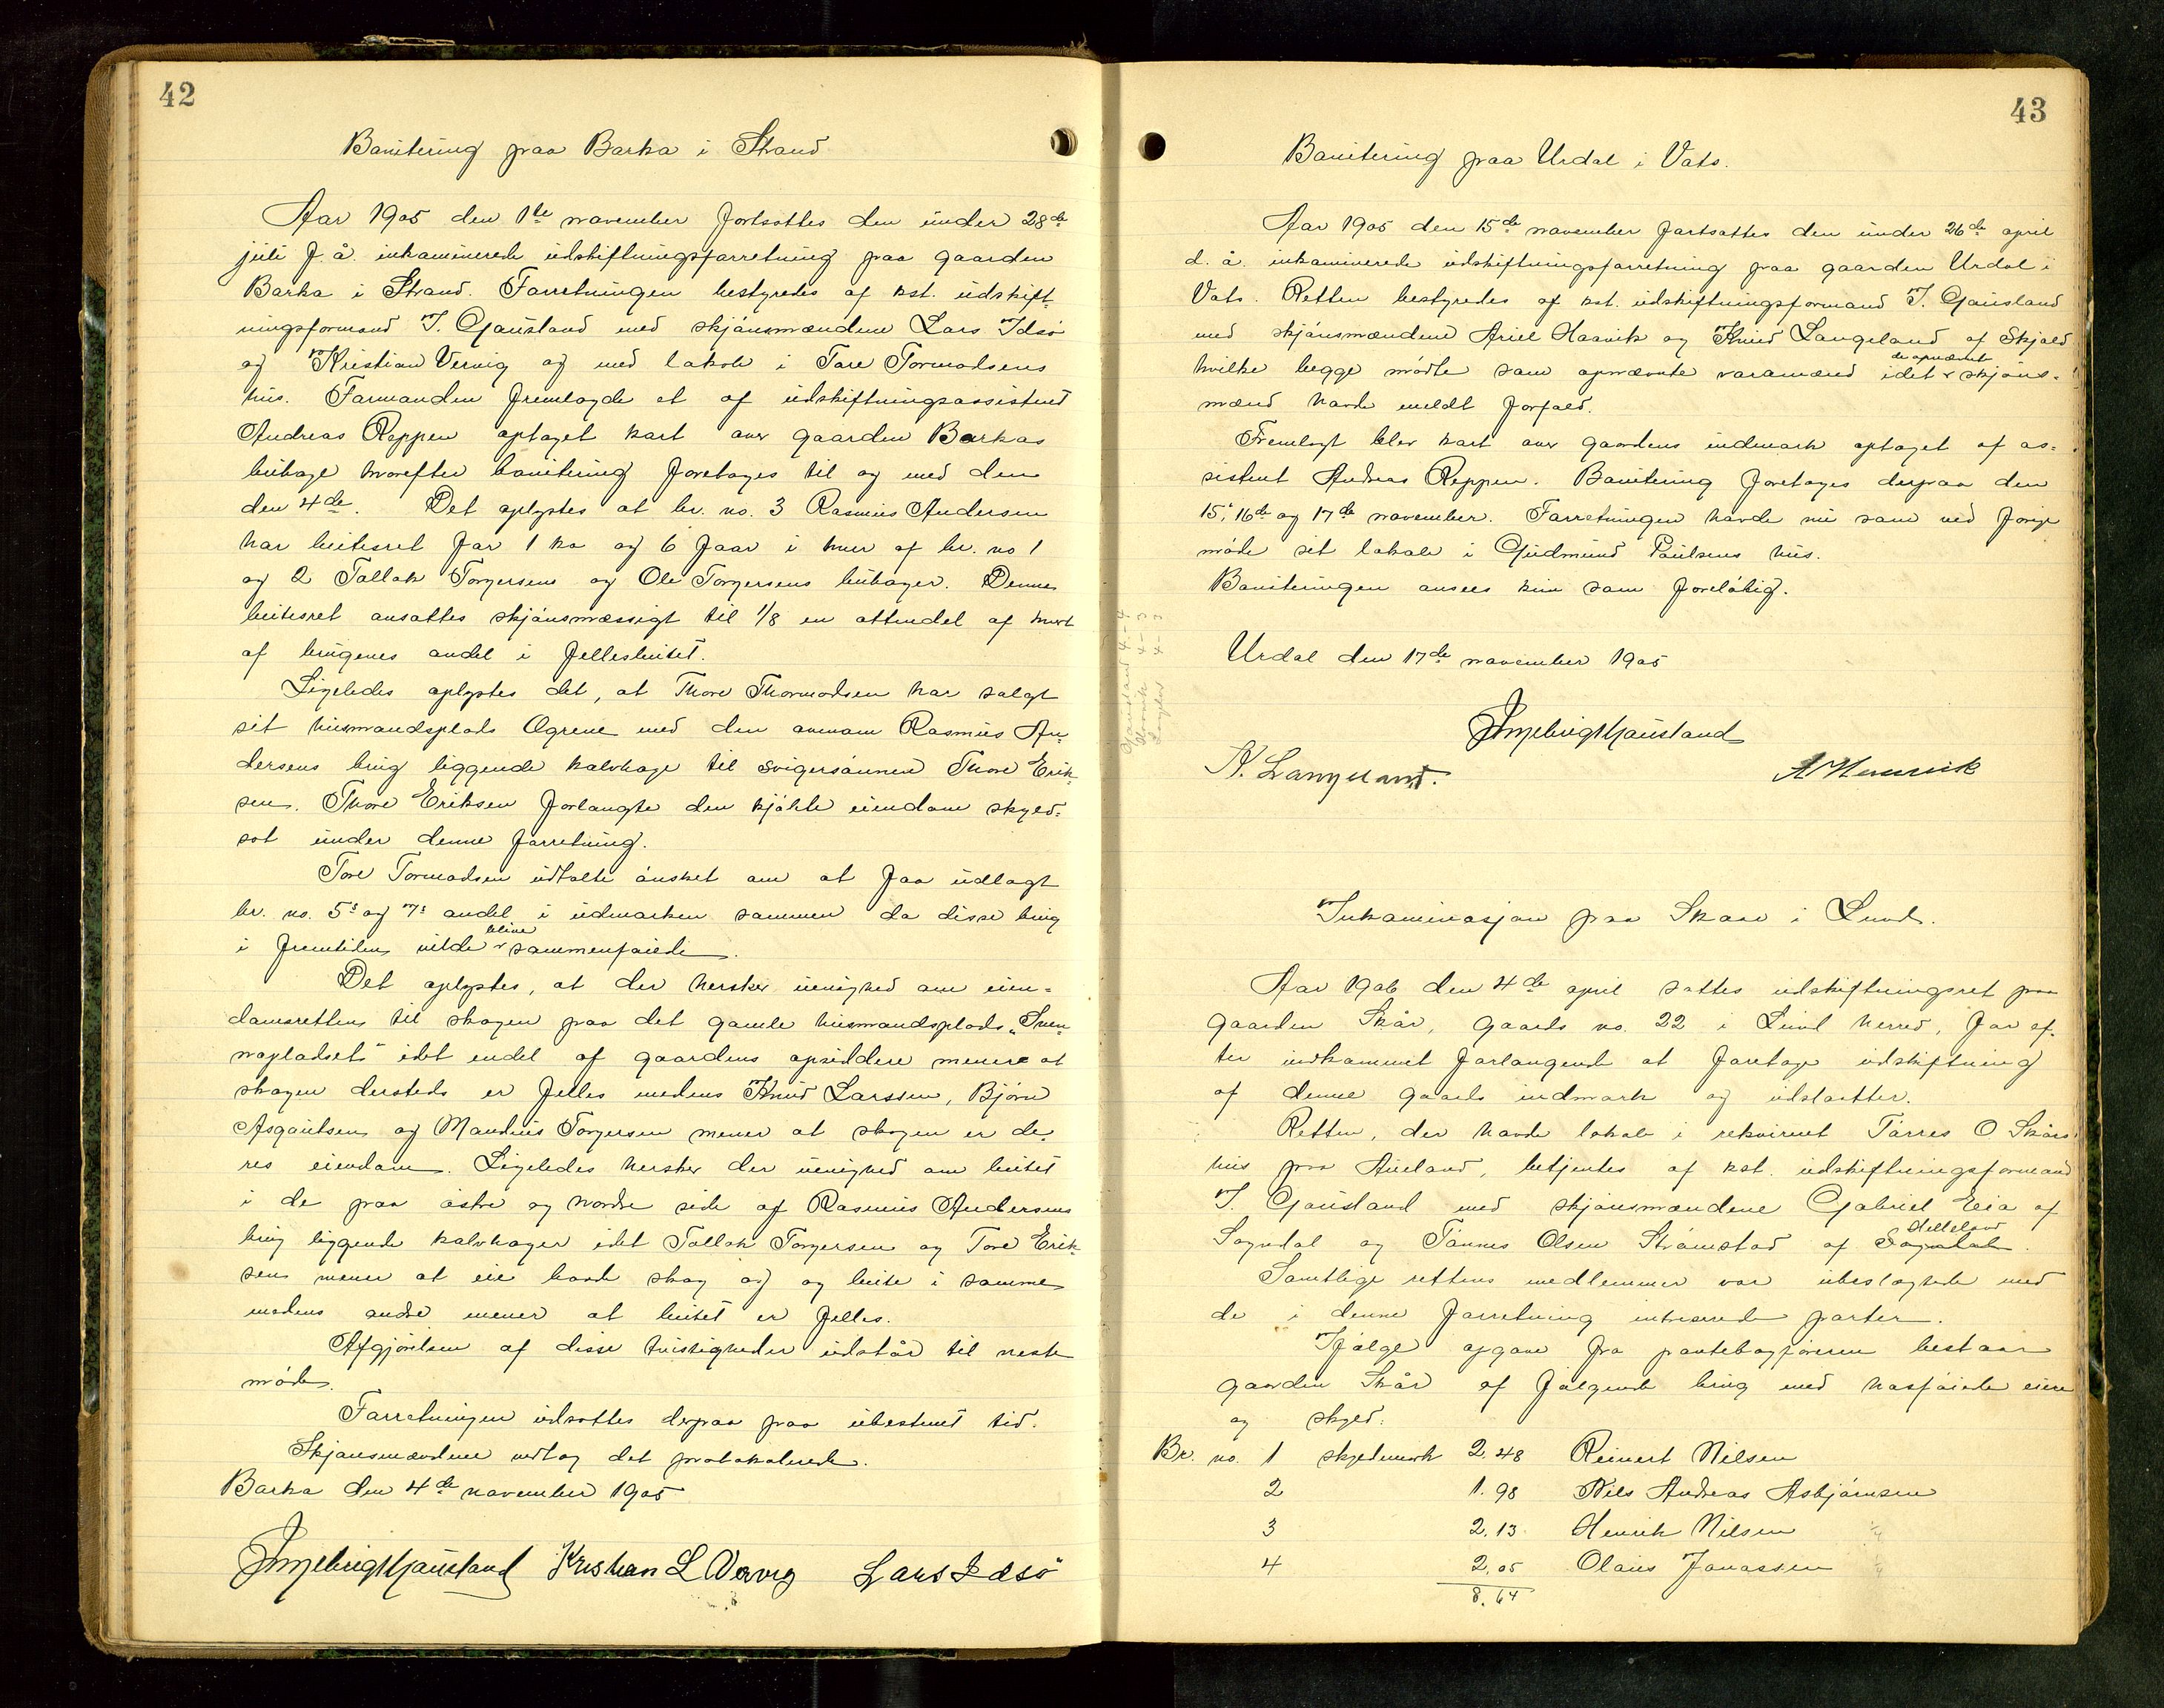 42
Bonitering paa Barka i Strand
Aar 1905 den 1ste november fortsattes den under 28de
juli f. å. inkaminerede udskiftningsforretning paa gaarden
Barka i Strand. Forretningen bestyredes af kst. udskift-
ningsformand I. Gausland med skjønsmændene Lars Idsö
og Kristian Vervig og med lokale i Tore Tormodsens
hus. Formanden fremlagde et af udskiftningsassistent
Andreas Reppen optaget kart over gaarden Barkas
buhage hvorefter bonitering foretoges til og med den
den 4de. Det oplystes at br. no. 3 Rasmus Andersen
har beitesret for 1 ko og 6 faar i hver af br. no 1
og 2 Tollak Torgersens og Ole Torgersens buhager. Denne
beitesret ansattes skjønsmæssigt til 1/8 en ottendel af hvert
af brugenes andel i fellesbeitet.
Ligeledes oplystes det, at Thore Thormodsen har solgt
sit husmandsplads Ogrene med den ovenom Rasmus An-
dersens brug liggende kalvhage til svigersønnen Thore Erik-
sen. Thore Eriksen forlangte den kjøbte eiendom skyld-
sat under denne forretning.
Tore Tormodsen udtalte ønsket om at faa udlagt
br. no. 5s og 7s andel i udmarken sammen da disse brug
i fremtiden vilde blive sammenføiede.
Det oplystes, at der hersker uenighed om eien-
domsretten til skogen paa det gamle husmandsplads "Sven-
napladset" idet endel af gaardens opsiddere mener at
skogen dersteds er felles medens Knud Larssen, Bjørn
Asgautsen og Maudius Torgersen mener at skogen er de-
res eiendom. Ligeledes hersker der uenighed om beitet
i de paa østre og nordre side af Rasmus Andersens
brug liggende kalvhager idet Tollak Torgersen og Tore Erik-
sen mener at eie baade skog og beite i samme
medens andre mener at beitet er felles.
Afgjørelsen af disse tvistigheder udstår til neste
møde.
Forretningen udsattes derpaa paa ubestemt tid.
Skjønsmændene vedtog det protokolerede.
Barka den 4de november 1905
Ingebrigt Gausland Kristian L Vervig Lars Idsö
43
Bonitering paa Urdal i Vats.
Aar 1905 den 15de november fortsattes den under 26de april
d. å. inkaminerede udskiftningsforretning paa gaarden Urdal i
Vats. Retten bestyredes af kst. udskiftningsformand I. Gausland
med skjønsmændene Ariel Haavik og Knud Langeland af Skjold
hvilke begge mødte som opnævnte varamænd idet de opnævnte skjøns-
mænd havde meldt forfald.
Fremlagt blev kart over gaardens indmark optaget af as-
sistent Andreas Reppen. Bonitering foretoges derpaa den
15, 16de og 17de november. Forretningen havde nu som ved forrige
møde sit lokale i Gudmund Paulsens hus.
Boniteringen ansees kun som foreløbig.
Urdal den 17de november 1905
Ingebrigt Gausland
K. Langeland.
Inkaminasjon paa Skaar i Lund.
Aar 1906 den 4de april sattes udskiftningsret paa
gaarden Skår, gaards no. 22 i Lund herred, for ef-
ter indkommet forlangende at foretage udskiftning
af denne gaards indmark og udslaatter.
Retten, der havde lokale i rekvirent Tørres O Skårs
hus paa Aueland, betjentes af kst. udskiftningsformand
I. Gausland med skjønsmændene Gabriel Eia af
Sogndal og Tønnes Olsen Strømstad af Helleland.
Samtlige rettens medlemmer var ubeslægtede med
de i denne forretning intreserede parter.
Ifølge opgave fra pantebogføreren bestaar
gaarden Skår af følgende brug med hosføiede eiere
og skyld:
Br. no. 1 skyldmark 2,48 Reinert Nilsen
2 1.98 Nils Andreas Asbjørnsen
3 2,13 Henrik Nilsen
4 2,05 Olaus Jonassen
8.64